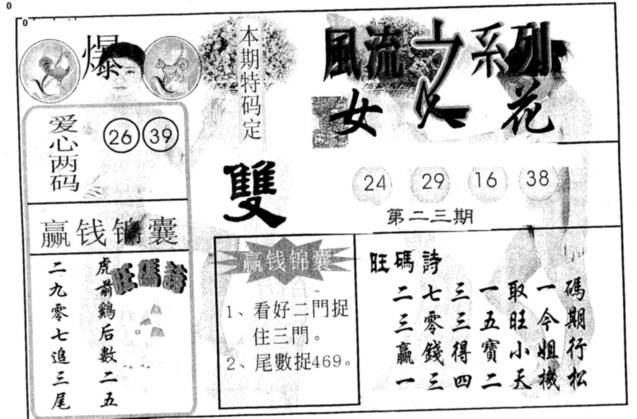 0
0
爆
本期特码定
風流之系列
女人花
爱心两码
26 39
雙
24 29 16 38
第二三期
赢钱锦囊
旺碼詩
虎前鷄后數二五
二九零七追三尾
赢钱锦囊
1、看好二門捉
住三門。
2、尾數捉469。
旺碼詩
碼期行松
一令姐機
取旺小天
一五寶二
三三得四
七零錢三
二三贏一